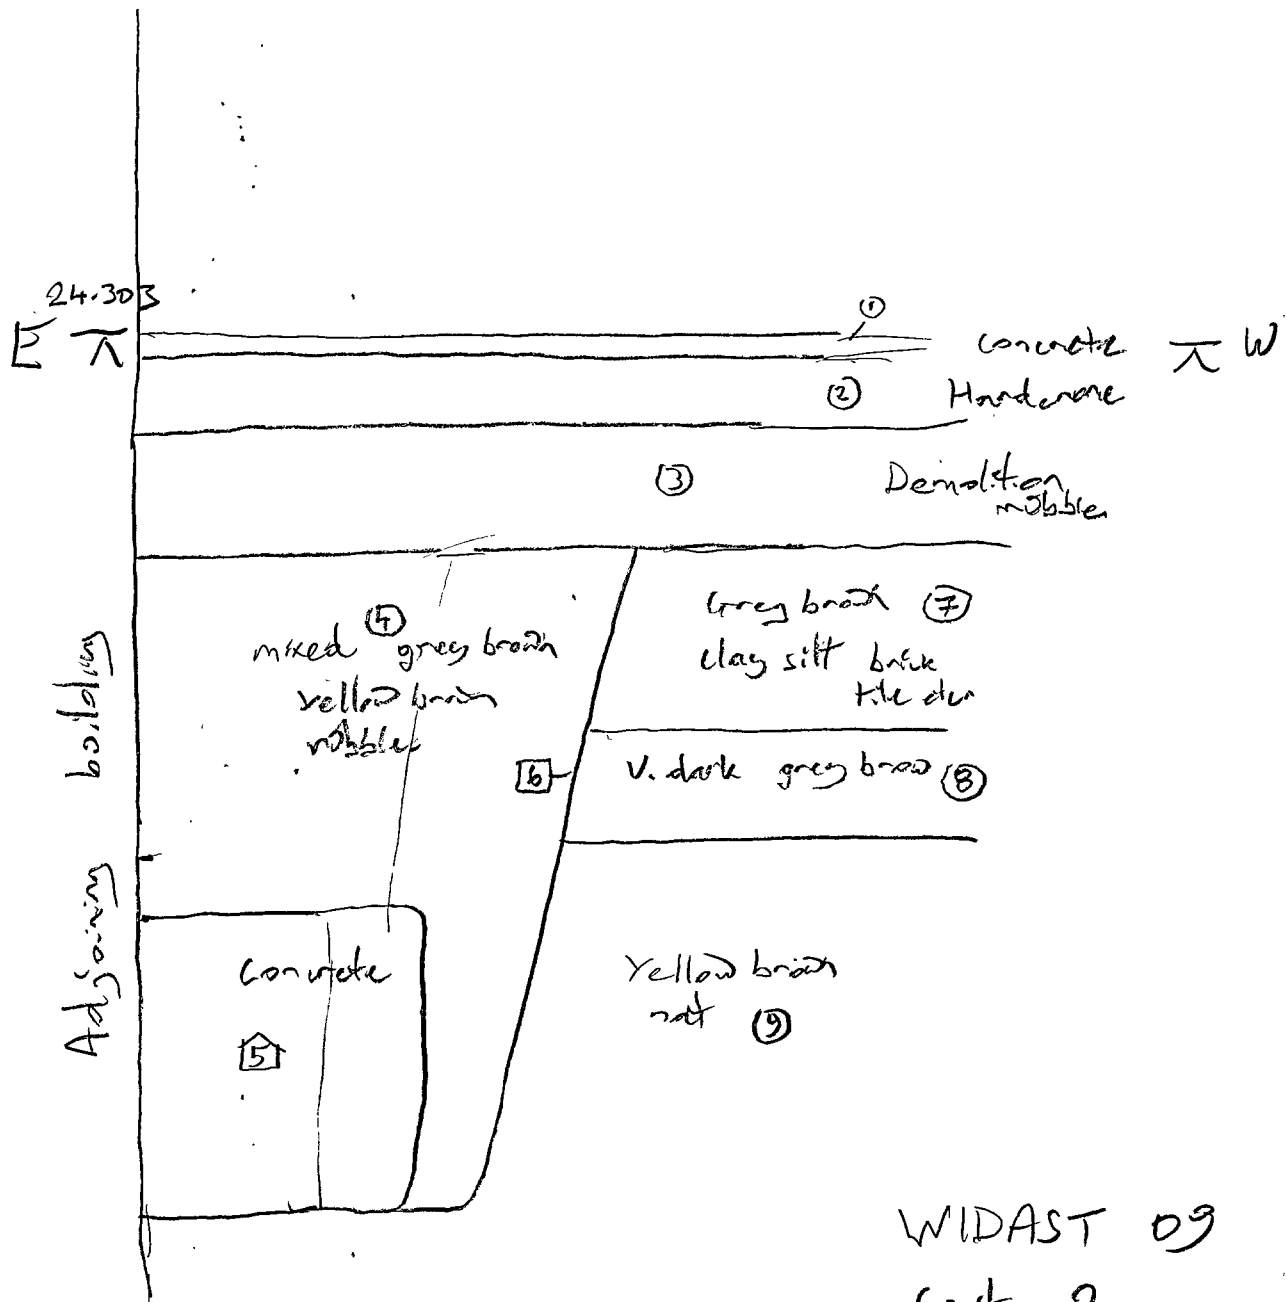 24.303
E W
①
Concrete
② Hardcore
③ Demolition
rubble
④
mixed grey brown
yellow brown
rubble
Grey brown ⑦
clay silt brick
tile
6
V. dark grey brown ⑧
Adjoining building
Concrete
5
Yellow brown
nat ⑨
WIDAST 09